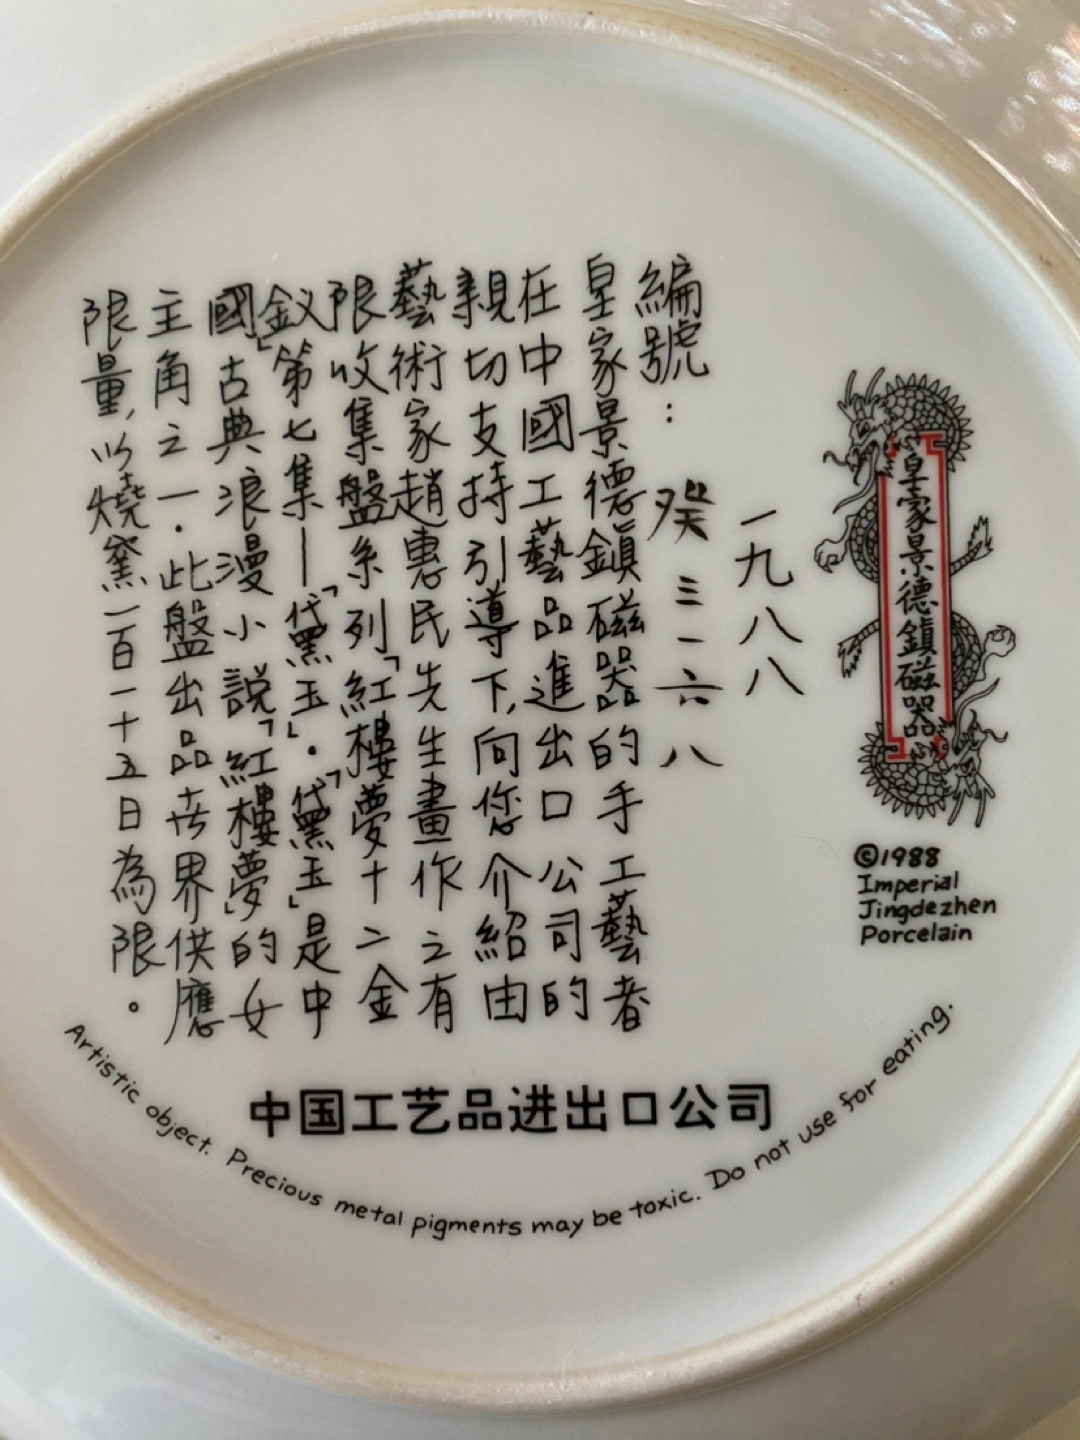 皇家景德鎮磁器
©1988
Imperial
Jingdezhen
Porcelain
一九八八
編號: 癸三一六八
皇家景德鎮磁器的手工藝者
在中國工藝品進出口公司的
親切支持引導下,向您介紹由
藝術家趙惠民先生畫作之有
限收集盤系列「紅樓夢十二金
釵」第七集—「黛玉」·「黛玉」是中
國古典浪漫小說「紅樓夢」的女
主角之一·此盤出品世界供應
限量,以燒窯一百一十五日為限。
中国工艺品进出口公司
Artistic object. Precious metal pigments may be toxic. Do not use for eating.